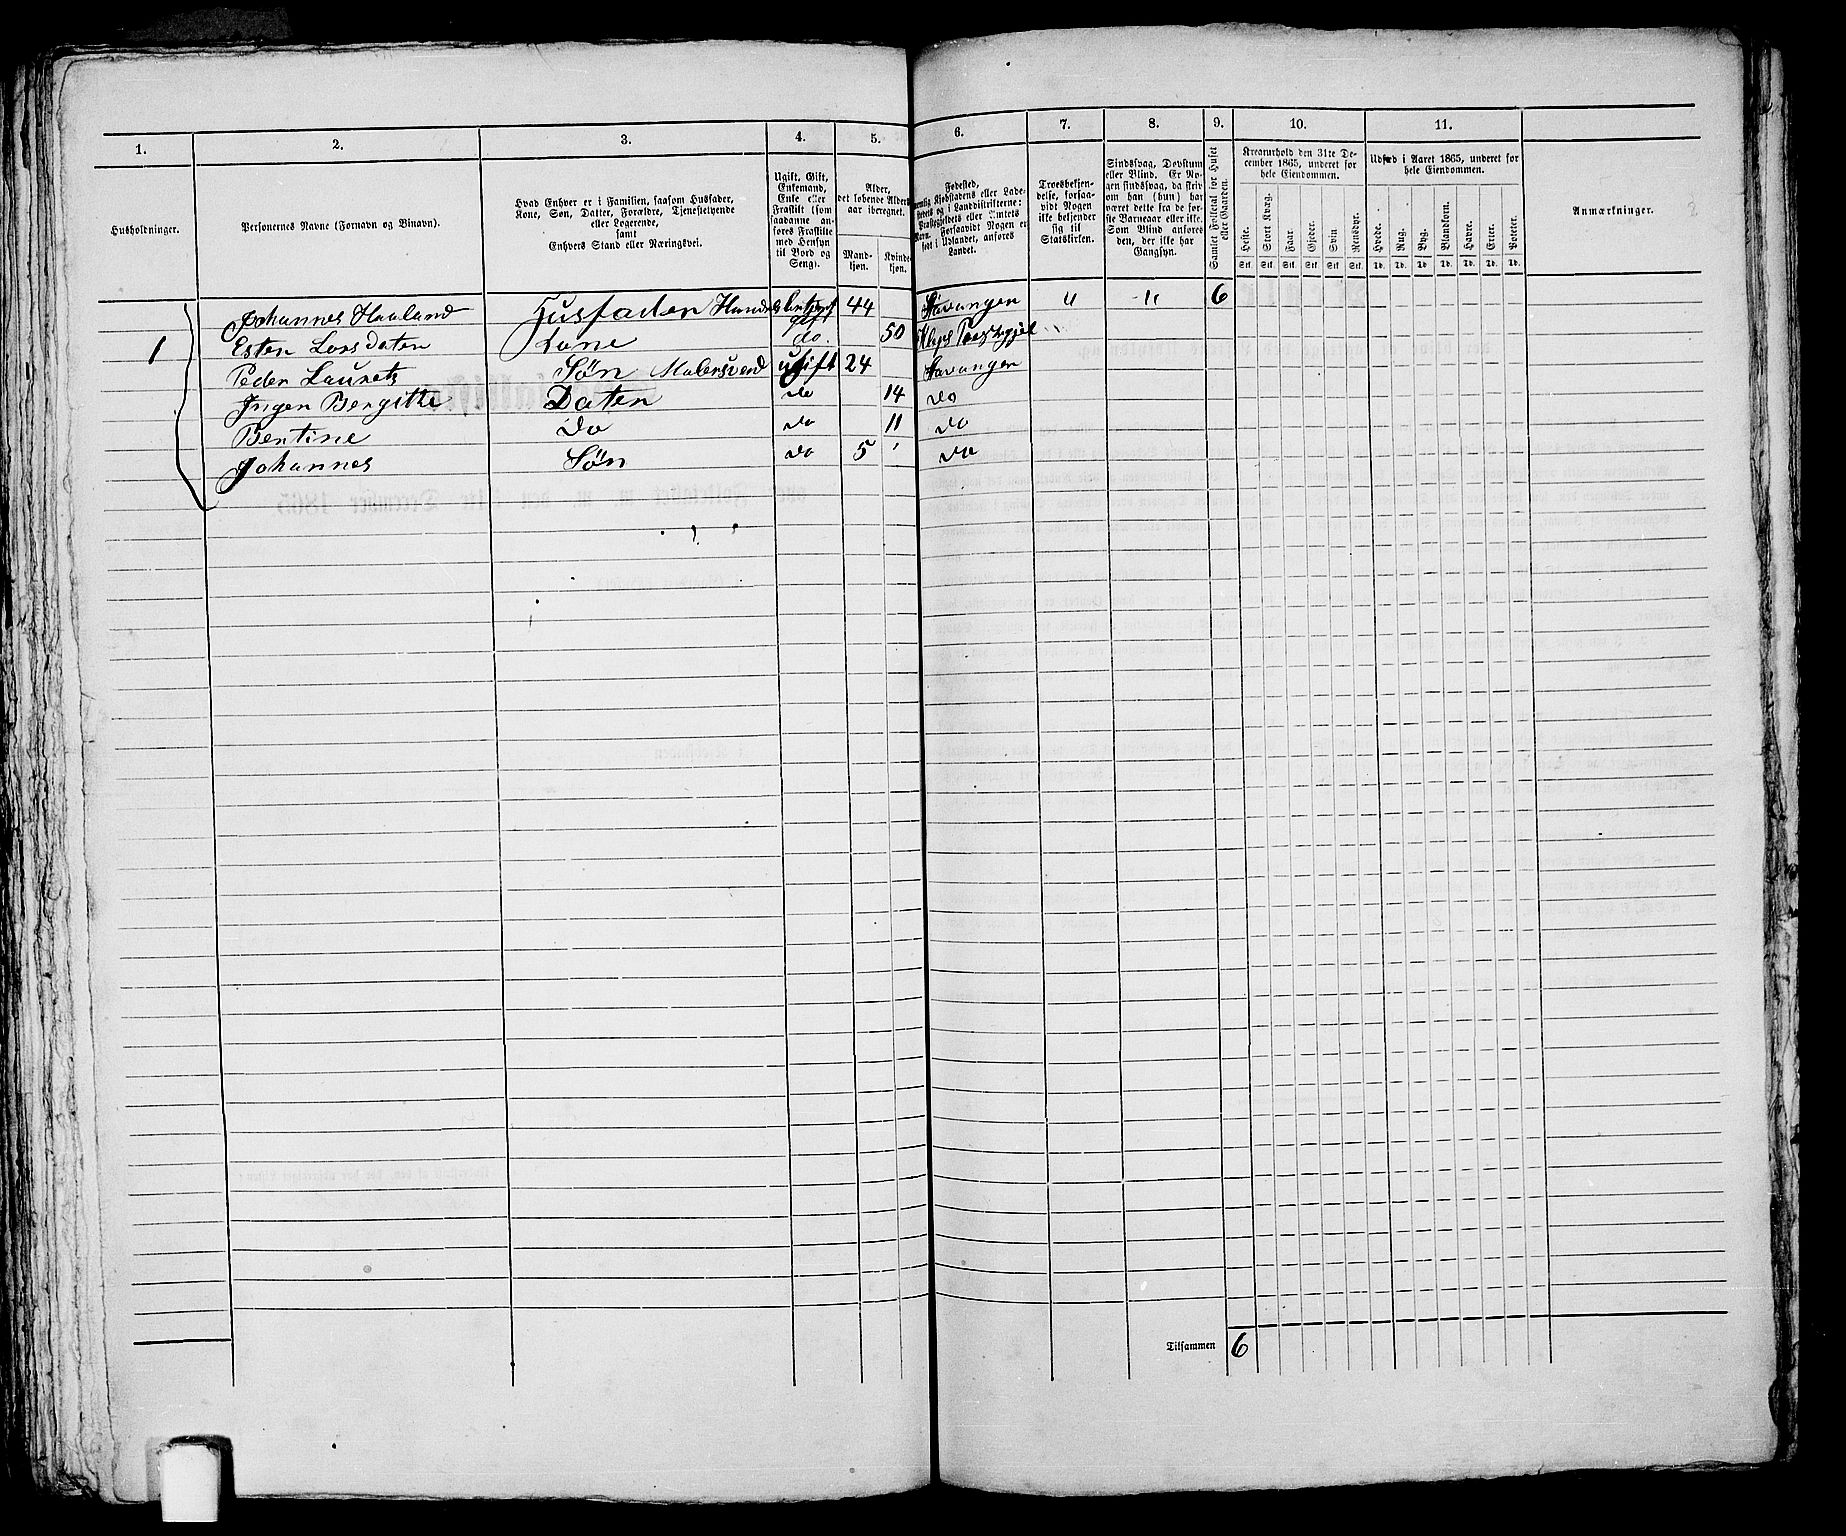 1.
2.
3.
4.
5.
6.
7.
8.
9.
10.
11.
Husholdninger.
Personernes Navne (Fornavn og Binavn).
Hvad Enhver er i Familien, saasom Husfader,
Kone, Søn, Datter, Forældre, Tjenestetyende
eller Logerende,
samt
Enhvers Stand eller Næringsvei.
Ugift, Gift,
Enkemand,
Enke eller
Fraskilt (som
saadanne an-
føres Fraskilte
med Hensyn
til Bord og
Seng).
Alder,
det løbende Alders-
aar iberegnet.
Mand-
kjøn.
Kvinde-
kjøn.
Fødested,
Kjøbstadens eller Lade-
i Landdistrikterne:
eller Amtets
Navn. Forsaavidt Nogen er
født i Udlandet, anføres
Landet.
Troesbekjen-
delse, forsaa-
vidt Nogen
ikke bekjender
sig til
Statskirken.
Sindssvag, Døvstum
eller Blind. Er No-
gen sindssvag, da skriv
om han (hun) har
været dette fra de før-
ste Barneaar eller ikke.
Som Blind anføres
den, der ikke har
Gangsyn.
Samlet Folketal for Huset
eller Gaarden.
Kreaturhold den 31te De-
cember 1865, underet for
hele Eiendommen.
Heste.
Stort Kvæg.
Faar.
Gjeder.
Svin
Rensdyr.
Stk. Stk. Stk. Stk. Stk. Stk.
Udsæd i Aaret 1865, underet for
hele Eiendommen.
Hvede.
Rug.
Byg.
Blandkorn.
Havre.
Erter.
Poteter.
Td. Td. Td. Td. Td. Td. Td.
Anmærkninger.
1
Johannes Haaland Husfaden gift 44 Stavangen " " 6
Esten Larsdaten Kone do. 50 Kleps
Peder Laurets Søn Malersvend ugift 24 Stavangen
Ingen Bergitte Daten do 14 do
Bentine do do 11 do
Johannes Søn do 5 do
Tilsammen 6